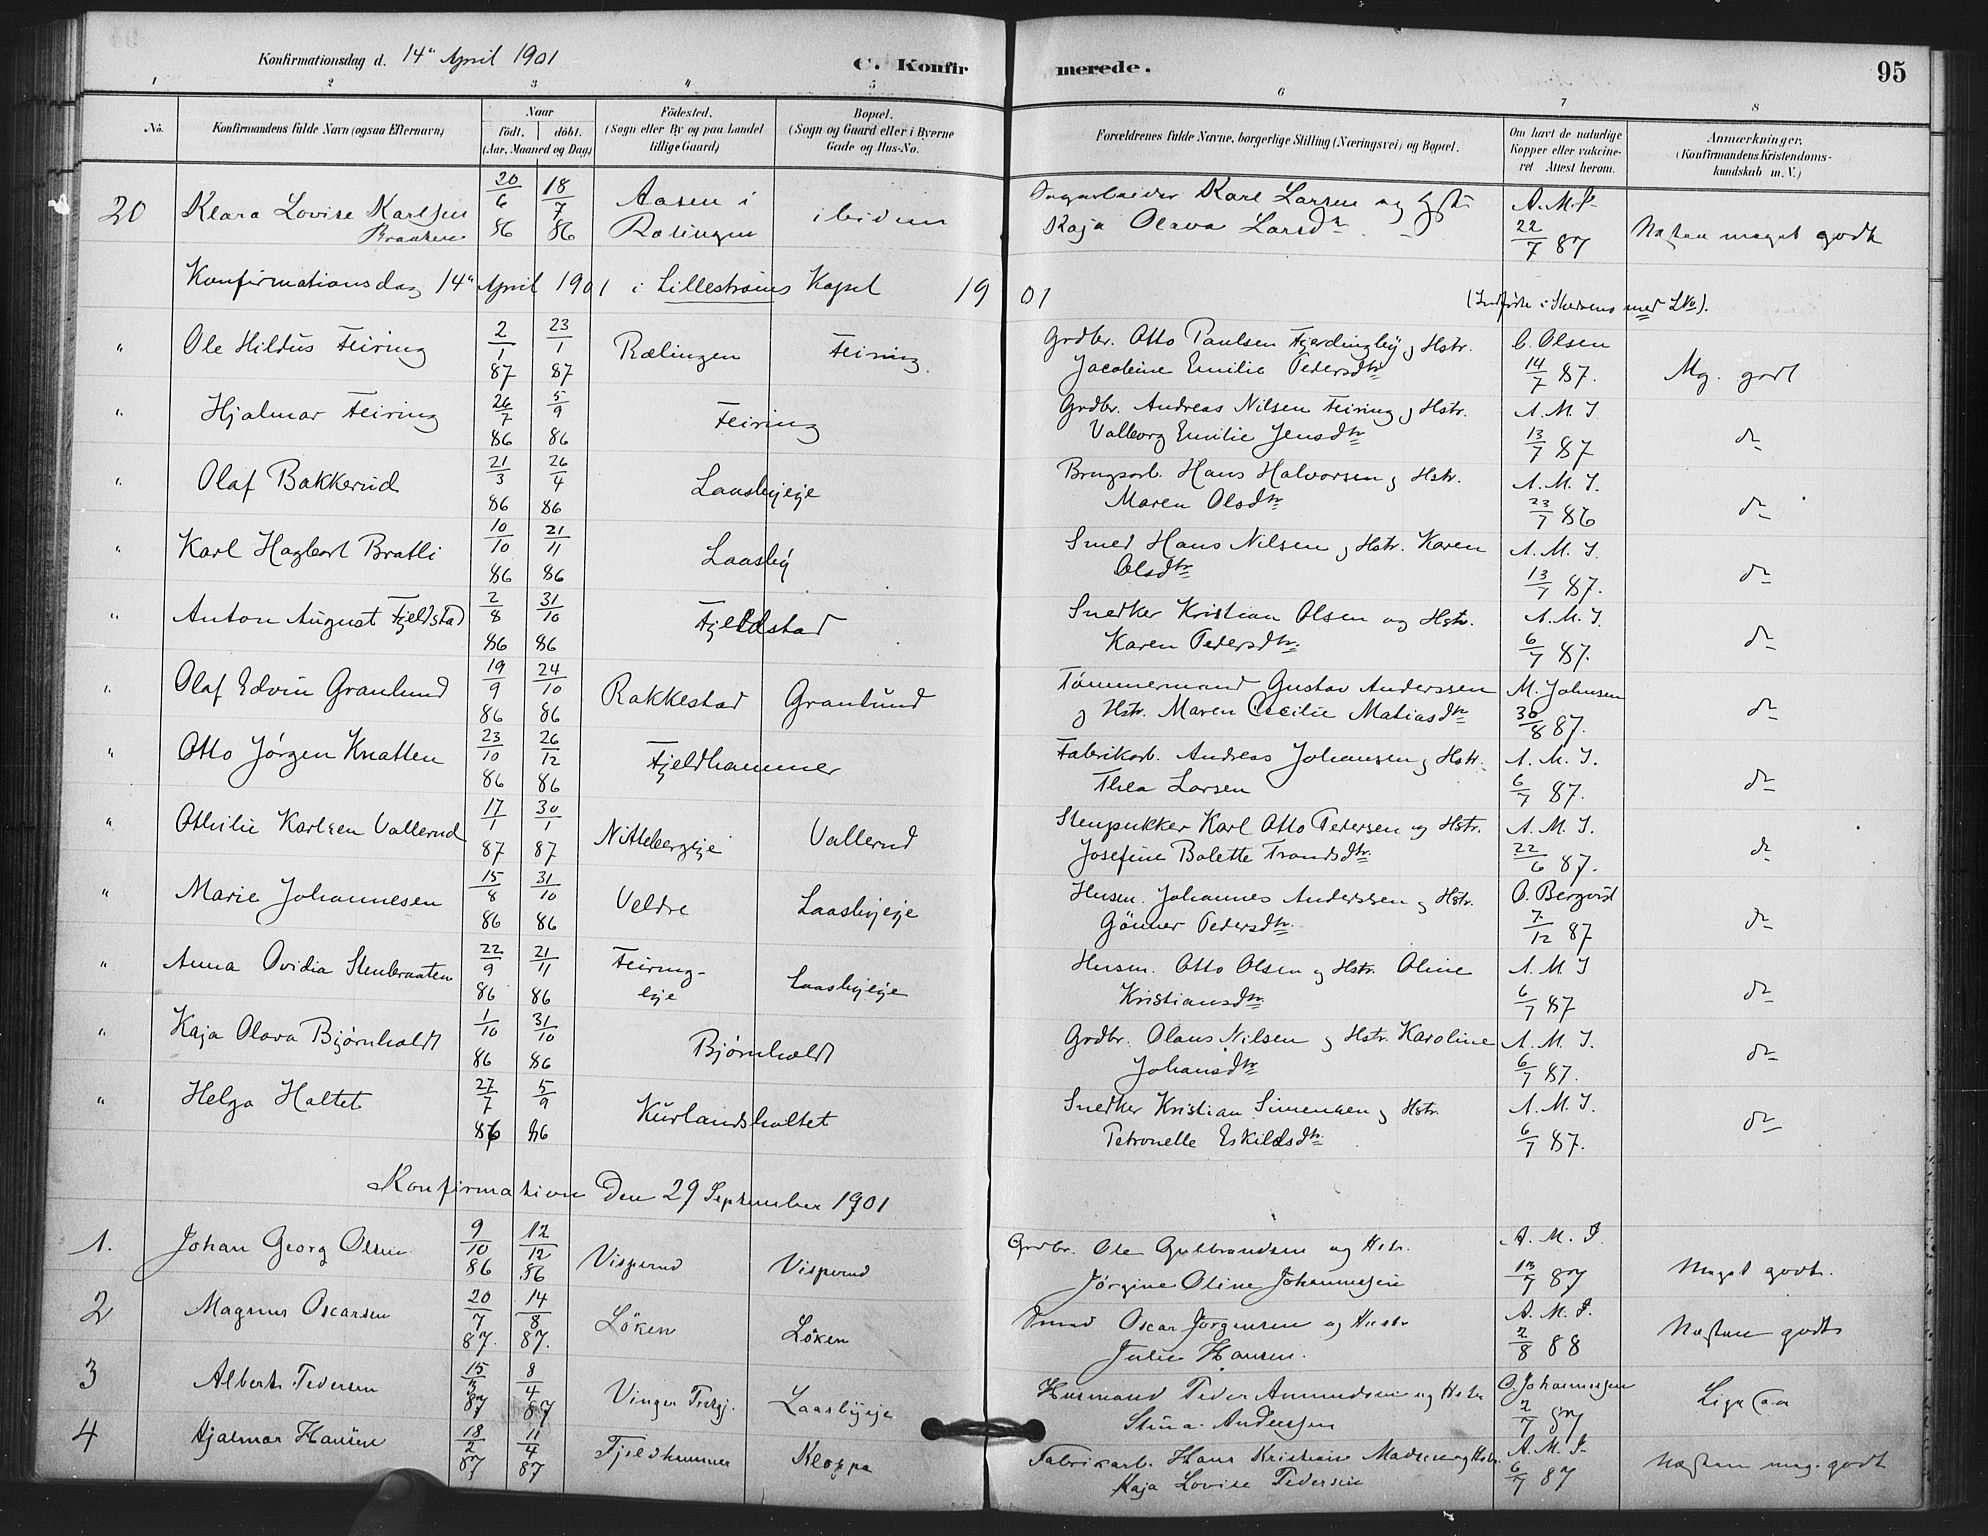 Konfirmationsdag d. 14de April 1901
C. Konfirmerede.
95
1 2 3 4 5 6 7 8
No. Konfirmandens fulde Navn (ogsaa Efternavn)
Naar født. døbt. (Aar, Maaned og Dag)
Fødested. (Sogn eller By og paa Landet tillige Gaard)
Bopæl. (Sogn og Gaard eller i Byerne Gade og Hus-No.
Forældrenes fulde Navne, borgerlige Stilling (Næringsvei) og Bopæl.
Om havt de naturlige Kopper eller vaccineret Attest herom.
Anmærkninger. (Konfirmandens Kristendomskundskab m. V.)
20 Klara Lovise Karlsen Braaten 20/6 86 18/7 86 Aasen i Rælingen ibidem Karl Larsen og Hst. Kaja Olava Larsdtr. 22/7 87 Næsten meget godt
Konfirmationsdag 14de April 1901 i Lillestrøms Kapel 1901
" Ole Hildus Feiring 2/1 87 23/1 87 Rælingen Feiring Grdbr. Otto Paulsen Fjerdingby og Hstr. Jacobine Emilie Pedersdtr. C. Olsen 14/7 87. Mg. godt
" Hjalmar Feiring 26/7 86 5/9 86 Feiring Grdbr. Andreas Nilsen Feiring og Hstr. Valborg Emilie Jensdtr. A. M. I. 13/7 87 do
" Olaf Bakkerud 21/3 86 26/4 86 Laasbyeje Brugsarb. Hans Halvorsen og Hstr. Maren Olsdtr. A. M. I. 23/7 86 do
" Karl Hagbart Bratli 10/10 86 21/11 86 Laasby Smed Hans Nilsen og Hstr. Karen Olsdtr. A. M. I. 13/7 87. do
" Anton August Fjeldstad 2/8 86 31/10 86 Fjeldstad Snedker Kristian Olsen og Hstr. Karen Pedersdtr. A. M. I. 6/7 87. do
" Olaf Edvin Granlund 19/9 86 24/10 86 Rakkestad Granlund Tømmermand Gustav Anderssen og Hstr. Maren Cecilie Matiasdtr. M. Johnsen 30/8 87. do
" Otto Jørgen Knatten 23/10 86 26/12 86 Fjeldhammer Fabrikarb. Andreas Johansen og Hstr. Thea Larsen A. M. I. 6/7 87. do
" Othilie Karlsen Vallerud 17/1 87 30/1 87 Nittebergeje Vallerud Stenpukker Karl Otto Pedersen og Hstr. Josefine Bolette Trondsdtr. A. M. I. 22/6 87. do
" Marie Johannesen 15/8 86 31/10 86 Veldre Laasbyeje Husm. Johannes Anderssen og Hstr. Gønner Pedersdtr. O. Bergvist 7/12 87 do
" Anna Ovidia Stenbraaten 22/9 86 21/11 86 Feiringeje Laasbyeje Husm. Otto Olsen og Hstr. Oline Kristiansdtr. A. M. I 6/7 87 do
" Kaja Olava Bjørnholdt 1/10 86 31/10 86 Bjørnholdt Grdbr. Olaus Nilsen og Hstr. Karoline Johansdtr. A. M. I. 6/7 87. do
" Helga Holtet 27/7 86 5/9 86 Kurlandsholtet Snedker Kristian Simensen og Hstr. Petronelle Eskildsdtr. A. M. I. 6/7 87. do
Konfirmation Den 29 September 1901
1. Johan Georg Olsen 9/10 86 12/12 86 Visperud Visperud Grdbr. Ole Gulbrandsen og Hstr. Jørgine Oline Johannesen A. M. I. 13/7 87 Meget godt.
2 Magnus Oscarsen 20/7 87. 14/8 87. Løken Løken Smed Oscar Jørgensen og Hustr Julie Hansen. A. M. I. 2/8 88 Næsten godt
3 Albert Pedersen 15/3 87 8/4 87 Vinger Laasbyeje Husmand Peder Amundsen og Hstr Stina Andersen C. Johannesen 2/7 87 Ligesaa
4 Hjalmar Hansen 18/2 87 11/4 87 Fjeldhammer Kloppa Fabrikarb. Hans Kristian Madsen og Hstr. Kaja Lovise Pedersen A. M. I. 6/7 87 Næsten meg. godt